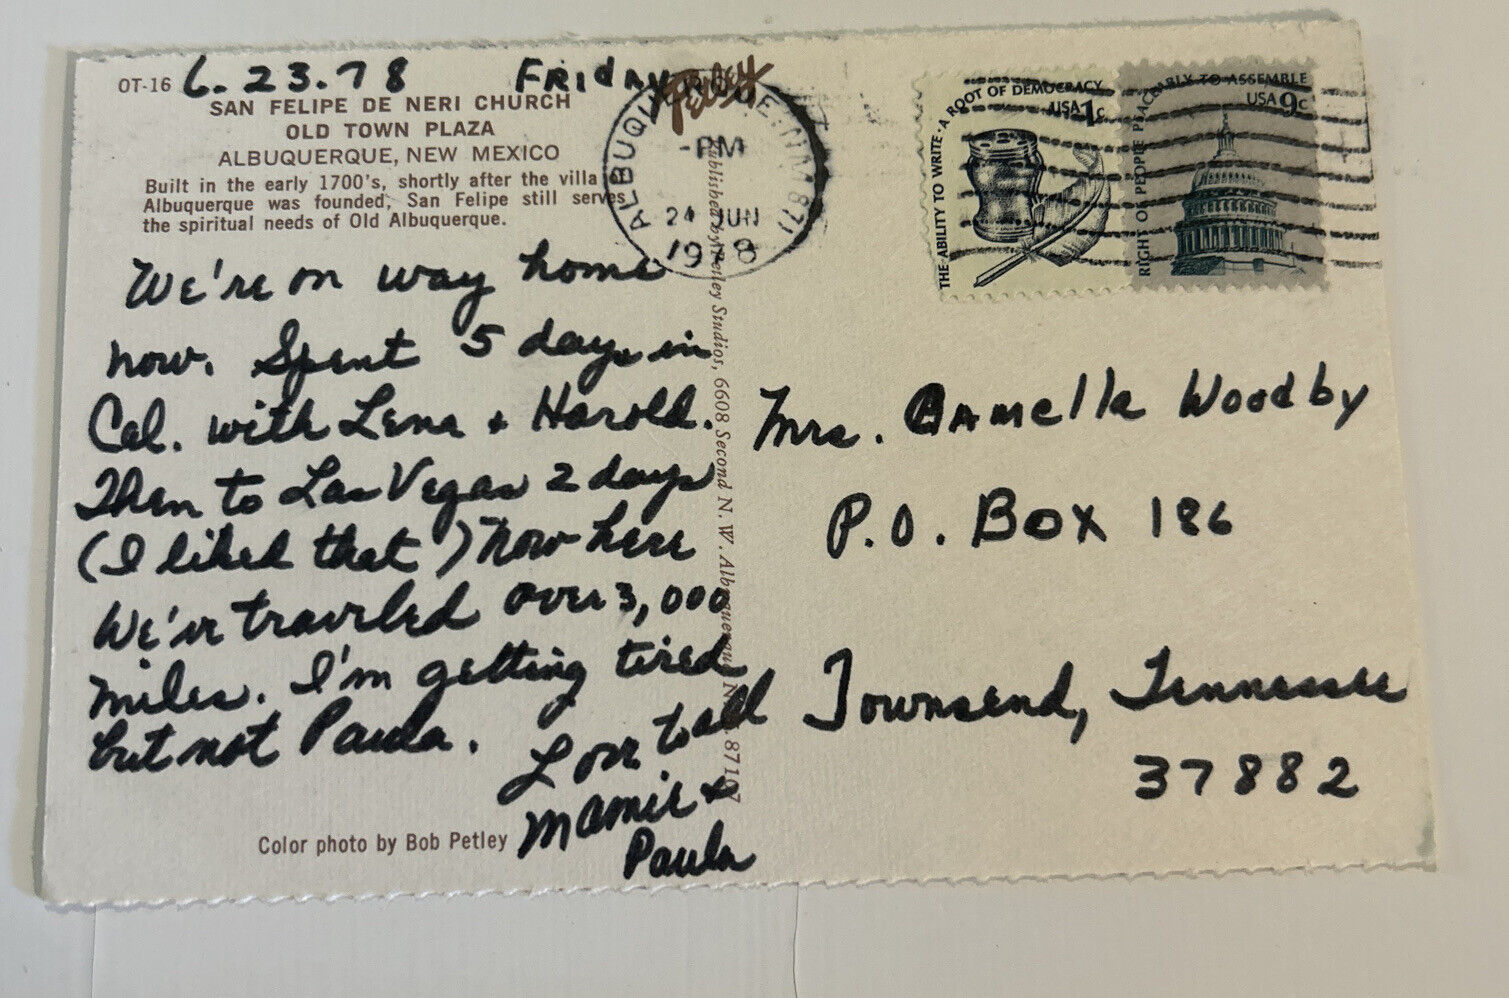 OT-16
6.23.78 Friday
SAN FELIPE DE NERI CHURCH
OLD TOWN PLAZA
ALBUQUERQUE, NEW MEXICO
Built in the early 1700's, shortly after the villa of
Albuquerque was founded, San Felipe still serves
the spiritual needs of Old Albuquerque.
We're on way home
now. Spent 5 days in
Cal. with Lena + Harold.
Then to Las Vegas 2 days
(I liked that) now here
We've traveled over 3,000
miles. I'm getting tired
but not Paula.
Love to all
Mamie +
Paula
Color photo by Bob Petley
Petley
Published by Petley Studios, 6608 Second N.W. Albuquerque, N.M. 87107
ALBUQUERQUE, NM 871
-PM
24 JUN
1978
THE ABILITY TO WRITE · A ROOT OF DEMOCRACY
USA 1c
RIGHT OF PEOPLE PEACEABLY TO ASSEMBLE
USA 9c
Mrs. Woodby
P.O. Box 186
Townsend, Tennessee
37882